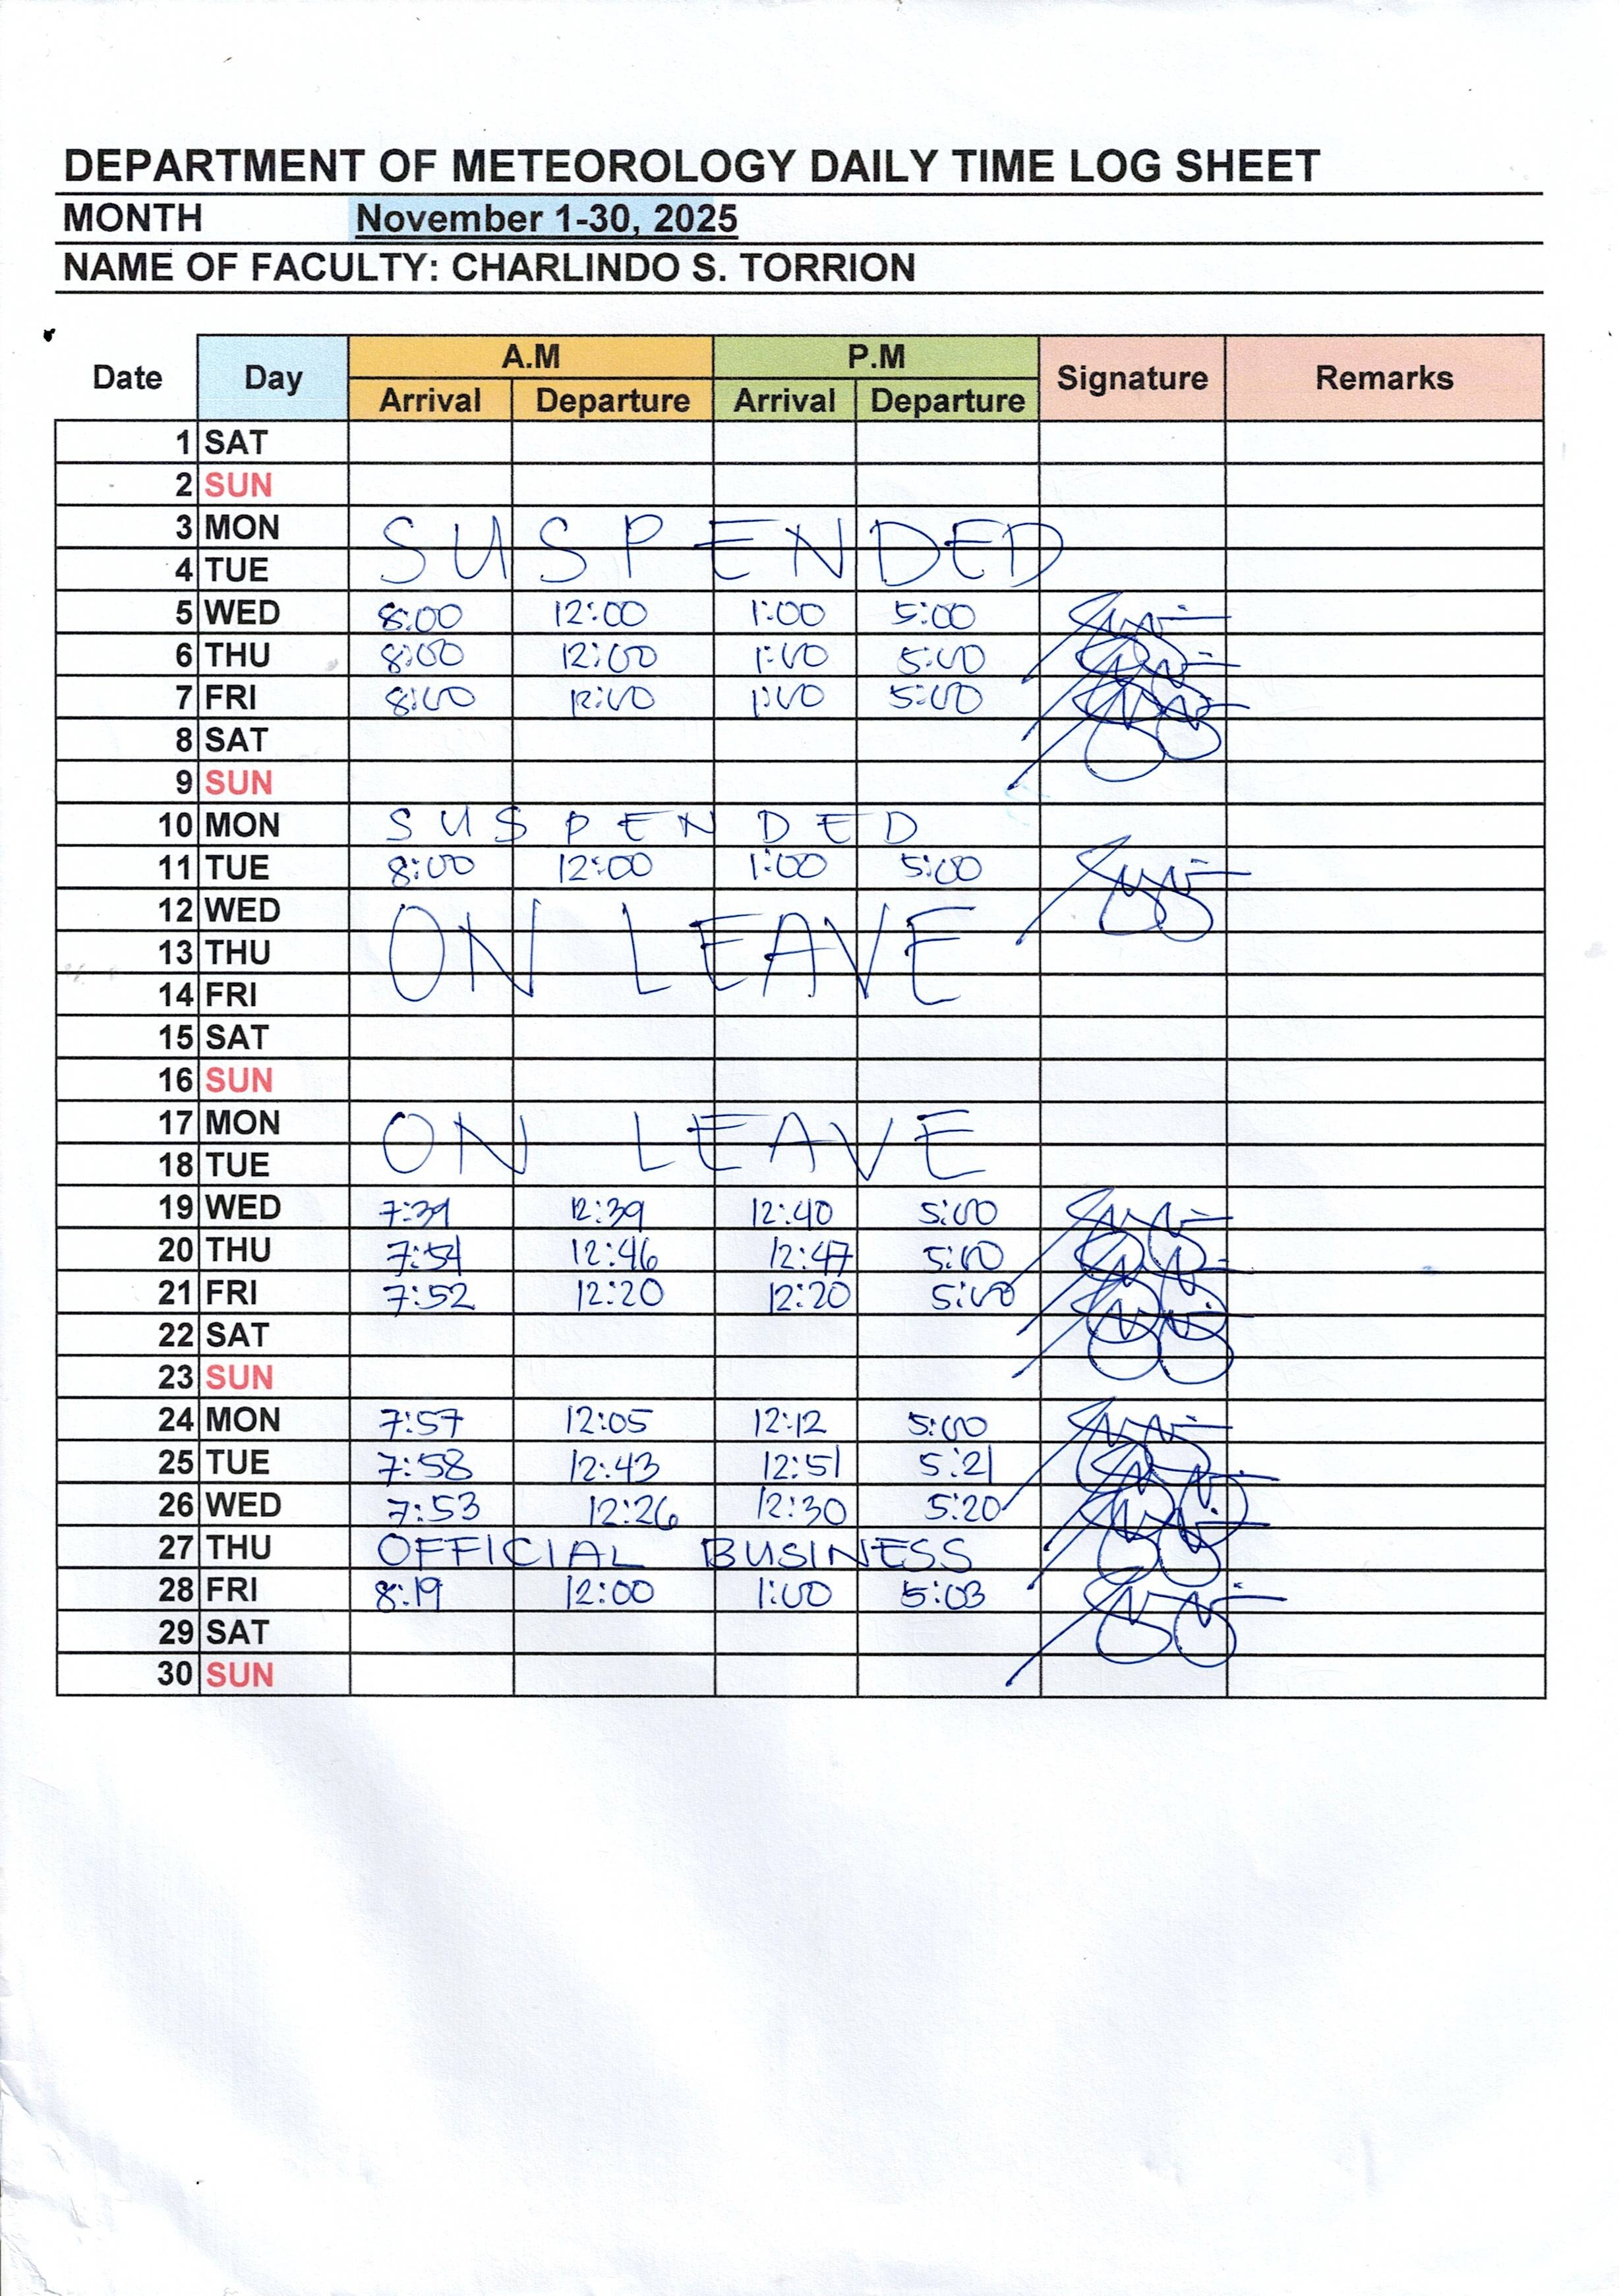 DEPARTMENT OF METEOROLOGY DAILY TIME LOG SHEET
MONTH November 1-30, 2025
NAME OF FACULTY: CHARLINDO S. TORRION
Date Day A.M P.M Signature Remarks
Arrival Departure Arrival Departure
1 SAT
2 SUN
3 MON SUSPENDED
4 TUE
5 WED 8:00 12:00 1:00 5:00
6 THU 8:00 12:00 1:00 5:00
7 FRI 8:00 12:00 1:00 5:00
8 SAT
9 SUN
10 MON SUSPENDED
11 TUE 8:00 12:00 1:00 5:00
12 WED ON LEAVE
13 THU
14 FRI
15 SAT
16 SUN
17 MON ON LEAVE
18 TUE
19 WED 7:39 12:39 12:40 5:00
20 THU 7:54 12:46 12:47 5:00
21 FRI 7:52 12:20 12:20 5:00
22 SAT
23 SUN
24 MON 7:57 12:05 12:12 5:00
25 TUE 7:58 12:43 12:51 5:21
26 WED 7:53 12:26 12:30 5:20
27 THU OFFICIAL BUSINESS
28 FRI 8:19 12:00 1:00 5:03
29 SAT
30 SUN